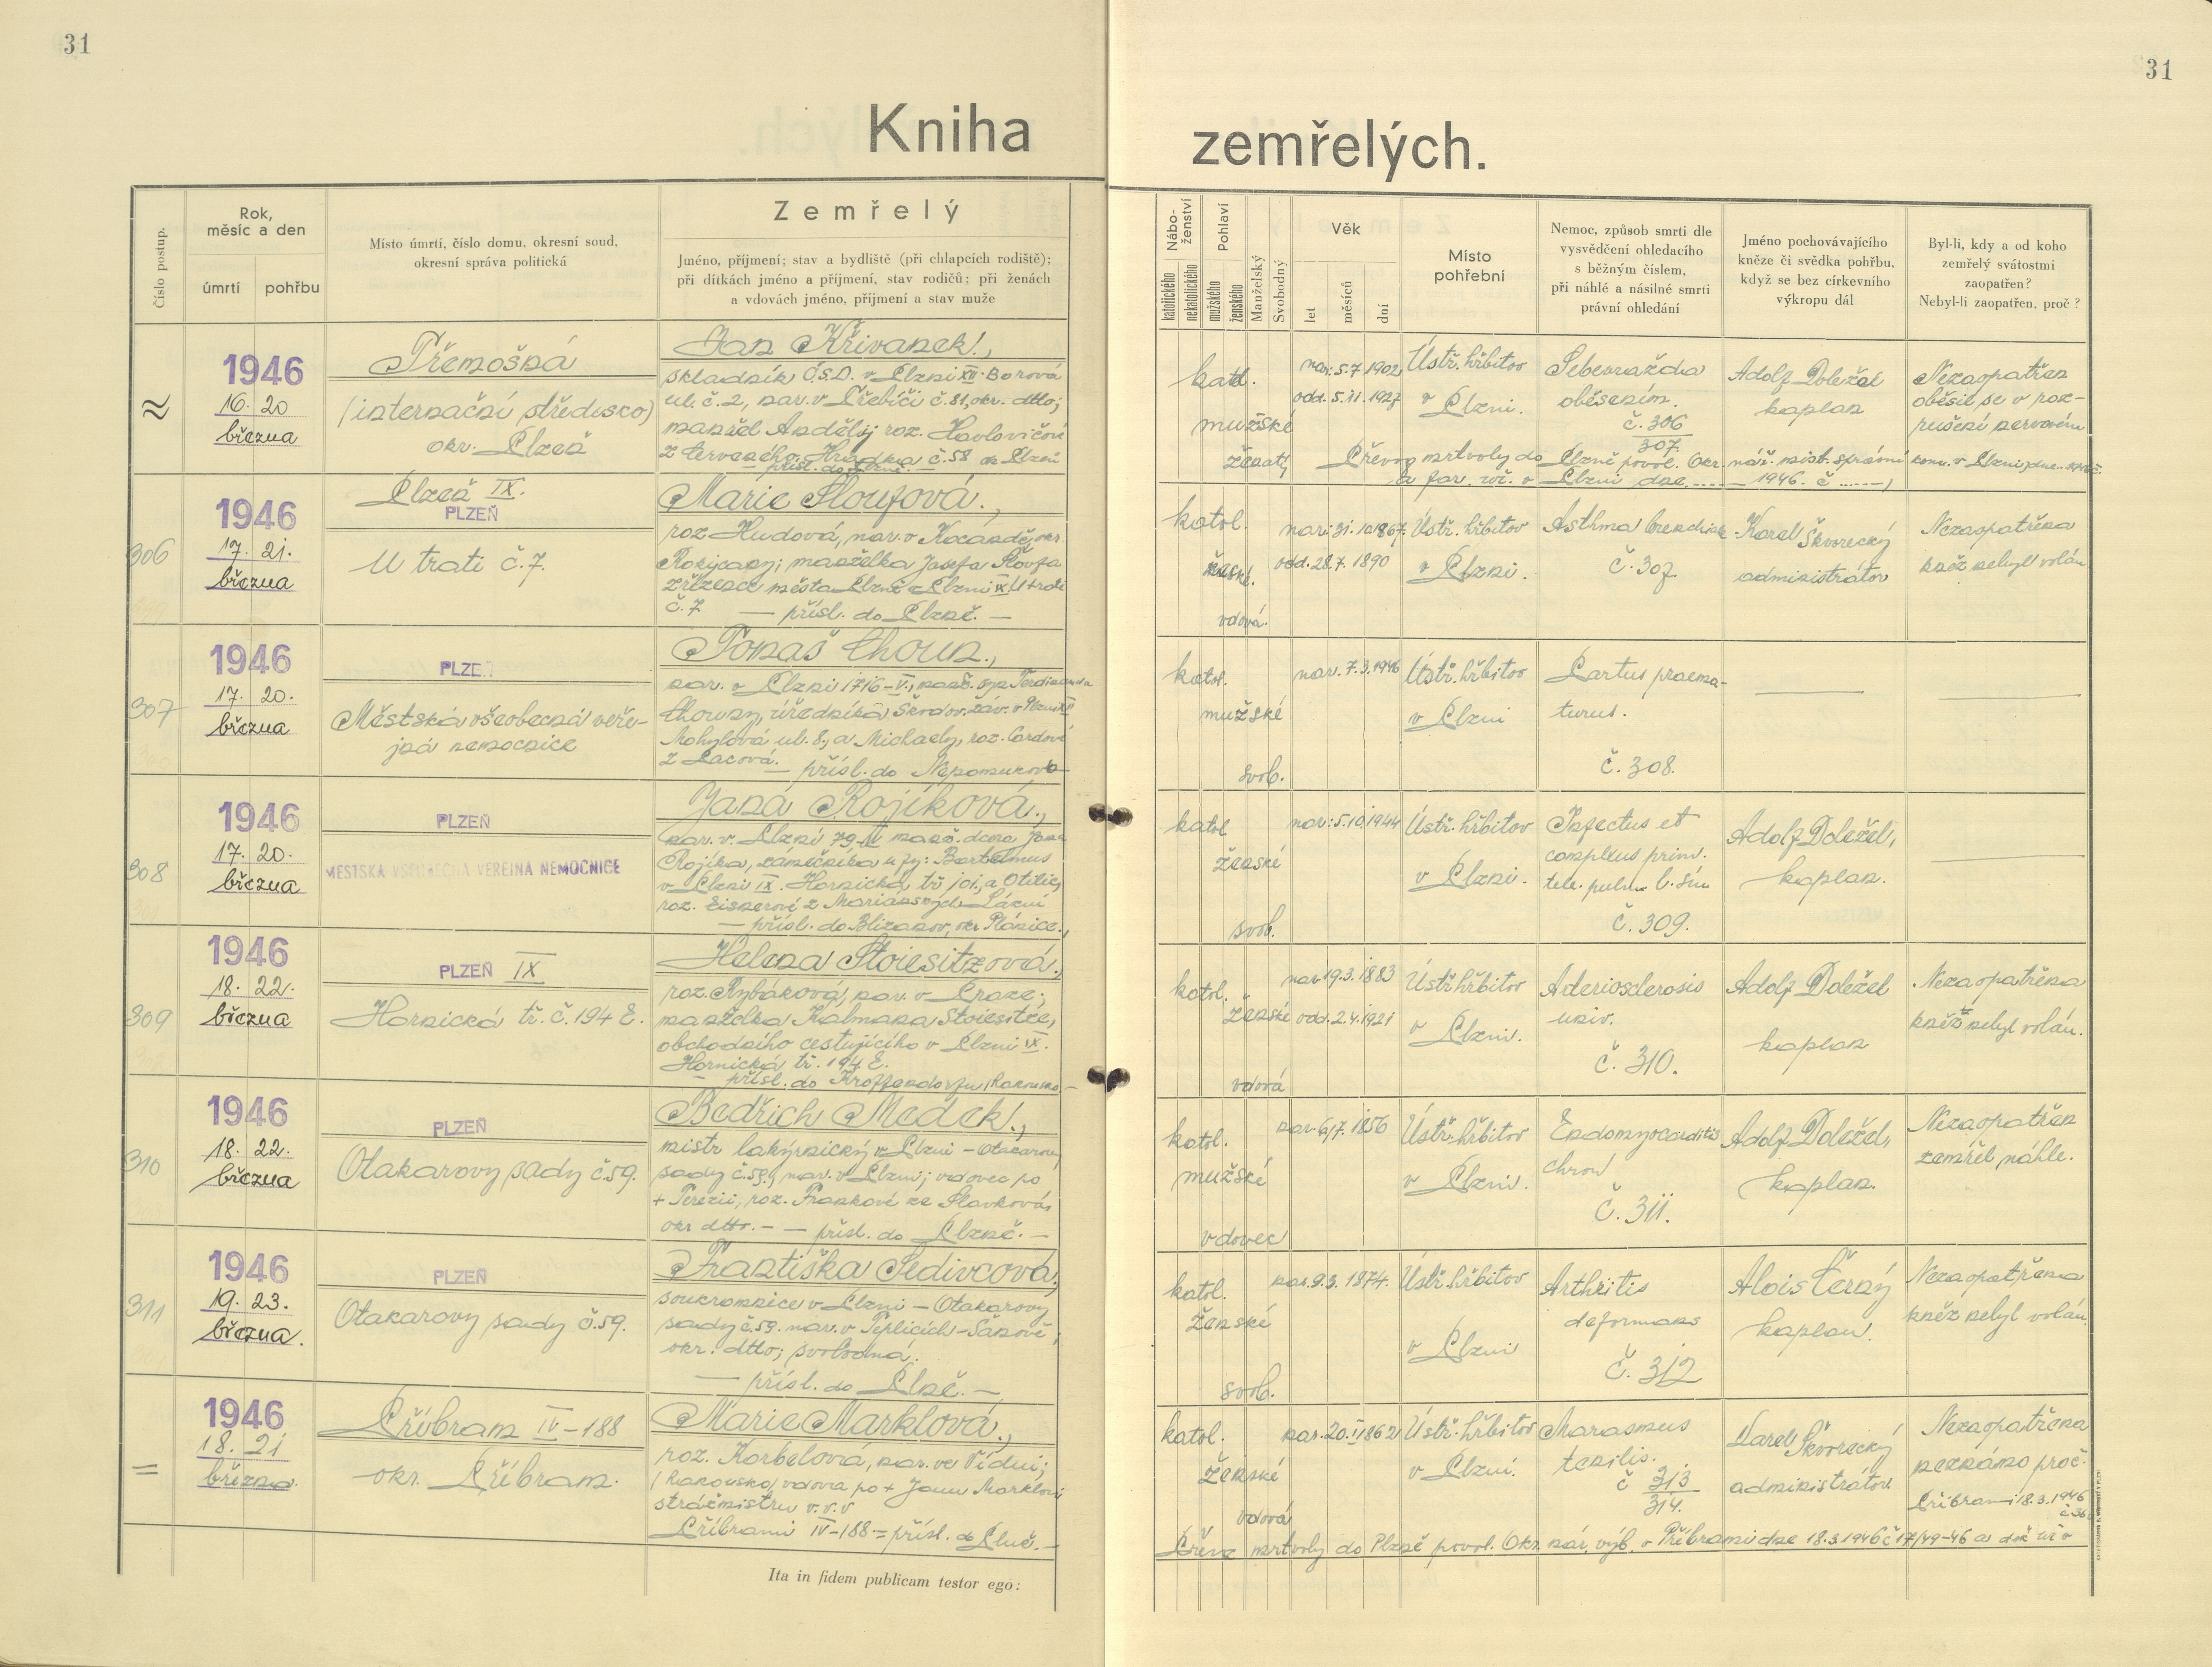 31
31
Kniha zemřelých.
Číslo postup.
Rok, měsíc a den
úmrtí
pohřbu
Místo úmrtí, číslo domu, okresní soud,
okresní správa politická
Zemřelý
Jméno, příjmení; stav a bydliště (při chlapcích rodiště);
při dítkách jméno a příjmení, stav rodičů; při ženách
a vdovách jméno, příjmení a stav muže
Nábo-
ženství
katolického
nekatolického
Pohlaví
mužského
ženského
Manželský
Svobodný
Věk
let
měsíců
dní
Místo
pohřební
Nemoc, způsob smrti dle
vysvědčení ohledacího
s běžným číslem,
při náhlé a násilné smrti
právní ohledání
Jméno pochovávajícího
kněze či svědka pohřbu,
když se bez církevního
výkropu dál
Byl-li, kdy a od koho
zemřelý svátostmi
zaopatřen?
Nebyl-li zaopatřen, proč?
1946
16. 20
března
Třemošná
(internační středisco)
okr. Plzeň
Jan Křivanek.,
skladník Č.S.D. v Plzni XII. Borová
ul. č. 2, nar. v Třebíči č. 81, okr. dtto;
manžel Anděly roz. Havlovičové
z Červeného Hrádku č. 58 ok Plzeň
přísl. do Plzně.
katol.
mužské
ženatý
nar. 5.7.1902
odd. 5.11.1927
Ústř. hřbitov
v Plzni.
Sebevražda
oběsením.
č. 306
307
Adolf Doležel
kaplan
Nezaopatřen
oběsil se v roz-
rušení nervovém
Převoz mrtvoly do Plzně povol. Okr. nář. míst. správní kom. v Plzni dne
a far. úř. v Plzni dne ...... 1946. č ......,
306
1946
17. 21.
března
Plzeň IX.
PLZEŇ
U trati č. 7.
Marie Ploufová.,
roz Hudová, nar. v Kocandě, okr.
Rokycany; manželka Josefa
zřízence města Plzně v Plzni IX. U trati
č. 7 — přísl. do Plzně. —
katol.
ženské.
vdova.
nar. 31.10.1867.
odd. 28.7. 1890
Ústř. hřbitov
v Plzni.
Asthma bronchiale
č. 307
Karel Škvorecký
administrátor
Nezaopatřena
kněz nebyl volán
307
1946
17. 20.
března
PLZEŇ
Městská všeobecná veře-
jná nemocnice
Tomáš Choun.,
nar. v Plzni 1716-V., manž. syn Ferdinanda
Chouna, úředníka Škodov. záv. v Plzni XII
Mohylová ul. 8., a Michaely, roz. Cardové
z Lacová. — přísl. do Nepomuku
katol.
mužské
svob.
nar. 7.3.1946
Ústř. hřbitov
v Plzni
Partus praema-
turus.
č. 308.
308
1946
17. 20.
března
PLZEŇ
MĚSTSKÁ VŠEOBECNÁ VEŘEJNÁ NEMOCNICE
Janá Rojíková.,
nar. v. Plzni 79-IV manž. dcera Jana
Rojíka, zámečníka u fy: Bartelmus
v Plzni IX. Hornická tř 101., a Otilie,
roz. Eisnerové z Mariánských Lázní
— přísl. do Blizanov, okr Plánice.,
katol
ženské
svob.
nar. 5.10.1944
Ústř. hřbitov
v Plzni.
Infectus et
complexus prim.
tbc. pulm l. sin
č. 309.
Adolf Doležel,
kaplan.
309
1946
18. 22.
března
PLZEŇ IX
Hornická tř. č. 194 E.
Helena Stoiesitzová.,
roz. Rybáková, nar. v Praze;
manželka Kalmana Stoiesitze,
obchodního cestujícího v Plzni IX.
Hornická tř. 194 E.
— přísl. do Kroffendorfu, Rakousko. —
katol.
ženské
vdová
nar 19.3.1883
odd. 2.4.1921
Ústř hřbitov
v Plzni.
Arteriosclerosis
univ.
č. 310.
Adolf Doležel
kaplan
Nezaopatřena
kněz nebyl volán.
310
1946
18. 22.
března
PLZEŇ
Otakarovy sady č. 59.
Bedřich Medek.,
mistr lakýrnický v Plzni - Otakarovy
sady č. 59., nar. v Plzni; vdovec po
+ Terezii, roz. Frankové ze Slavkova,
okr dtto. — — přísl. do Plzně. —
katol.
mužské
vdovec
nar. 6.7.1856
Ústř. hřbitov
v Plzni.
Endomyocarditis
chron
č. 311.
Adolf Doležel,
kaplan.
Nezaopatřen
zemřel náhle.
311
1946
19. 23.
března.
PLZEŇ
Otakarovy sady č. 59.
Františka Sedivcová.,
soukromnice v Plzni — Otakarovy
sady č. 59. nar. v Teplicích-Šanově,
okr. dtto; svobodná.
— přísl. do Plzně. —
katol.
ženské
svob.
nar. 9.3. 1874.
Ústř. hřbitov
v Plzni
Arthritis
deformans
č. 312
Alois Černý
kaplan.
Nezaopatřena
kněz nebyl volán.
1946
18. 21
března.
Příbram IV-188
okr. Příbram.
Marie Marklová.,
roz. Korbelová, nar. ve Vídni;
(Rakousko), vdova po + Janu Marklovi
strážmistru v. v. v
Příbrami IV-188 = přísl. do Plzně. —
katol.
ženské
vdová
nar. 20.11.1862
Ústř. hřbitov
v Plzni.
Marasmus
senilis.
č 313
314.
Karel Škvorecký
administrátor.
Nezaopatřena
neznámo proč.
Příbrami 18.3.1946
Převoz mrtvoly do Plzně povol. Okr. nár. výb. v Příbrami dne 18.3.1946 č 17/49-46 a
Ita in fidem publicam testor ego: